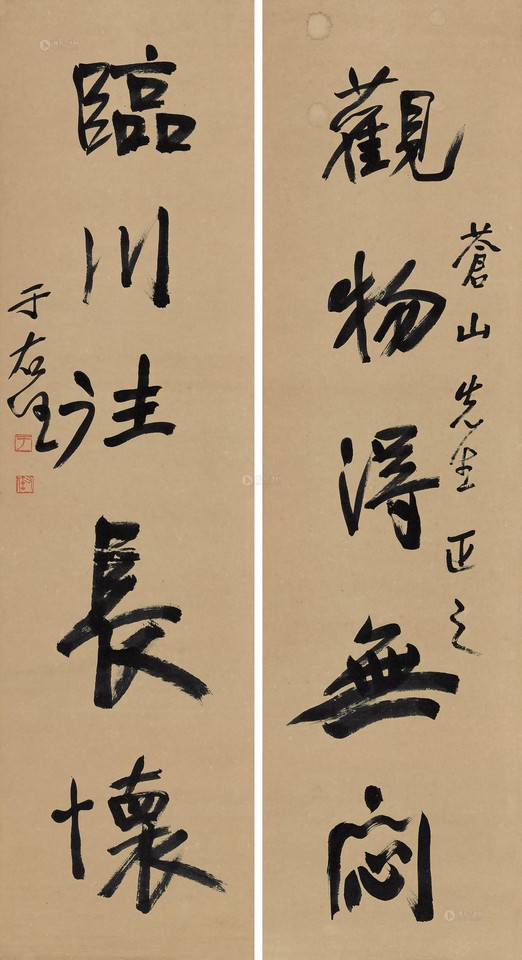 蒼山先生正之
觀物得無悶
臨川長懷
于右任